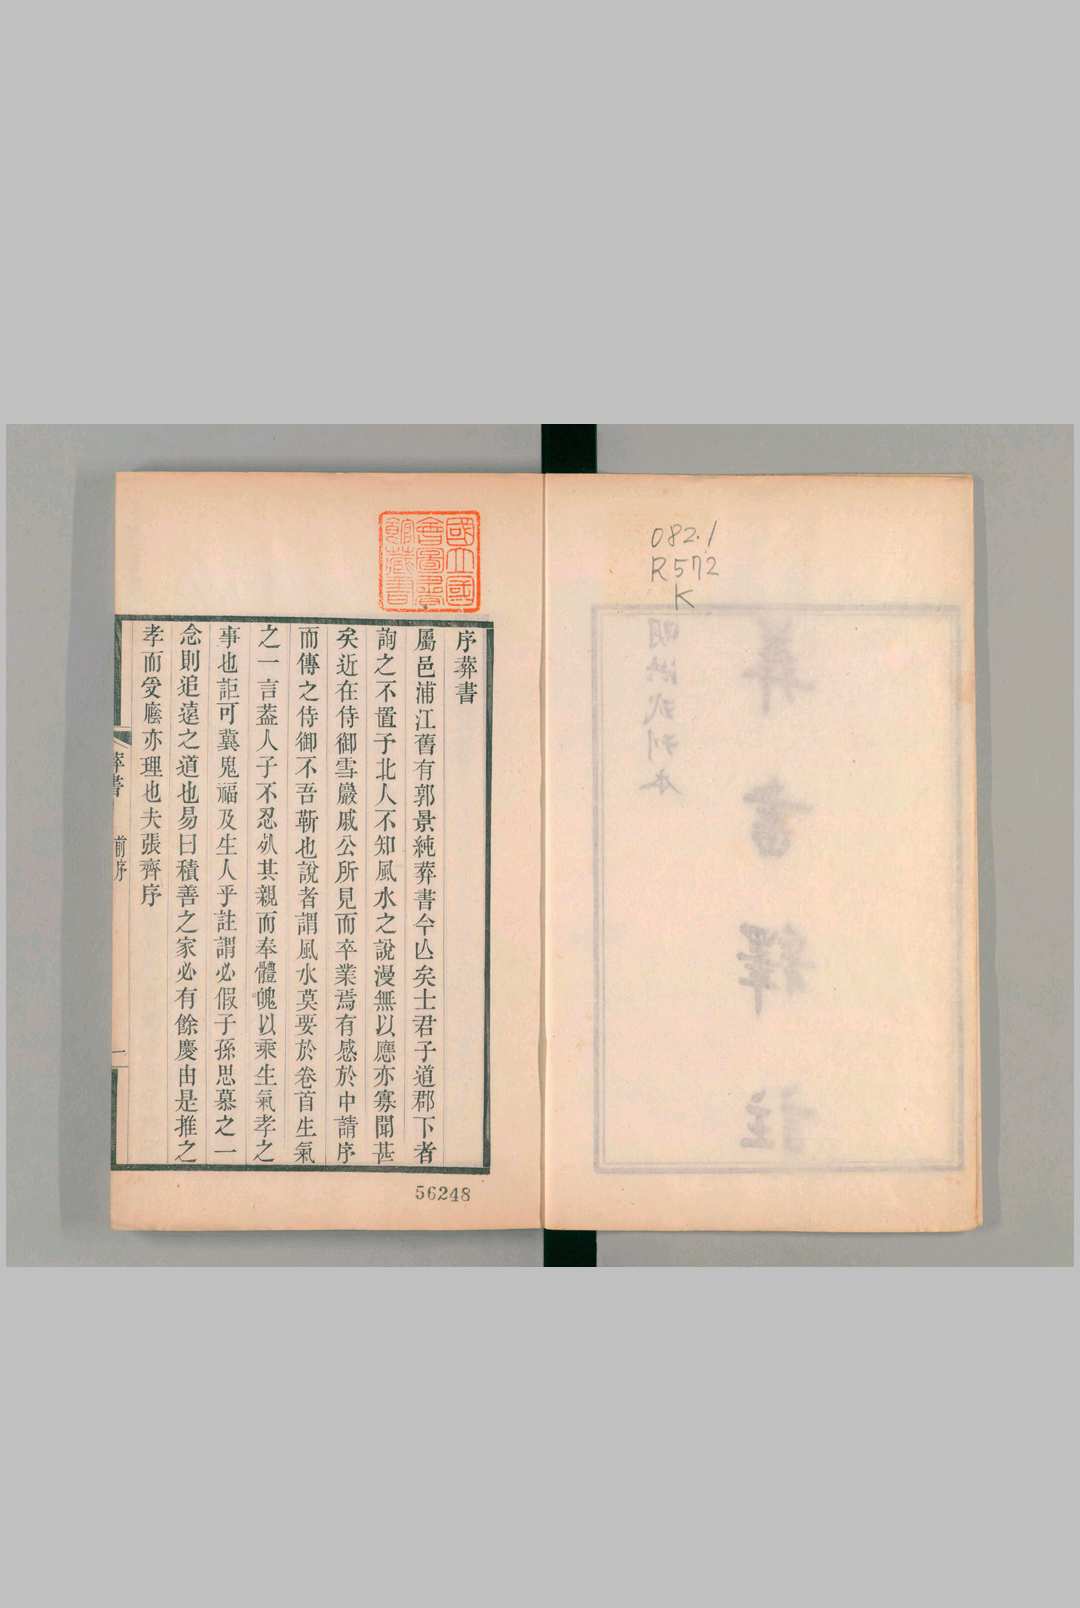 082.1
R572
K
葬書釋註
明洪武刊本
國立國
會圖書
館藏書
序葬書
屬邑浦江舊有郭景純葬書今亾矣士君子道郡下者
詢之不置予北人不知風水之說漫無以應亦寡聞甚
矣近在侍御雪巖戚公所見而卒業焉有感於中請序
而傳之侍御不吾靳也說者謂風水莫要於卷首生氣
之一言葢人子不忍死其親而奉體魄以乘生氣孝之
事也詎可冀鬼福及生人乎註謂必假子孫思慕之一
念則追遠之道也易曰積善之家必有餘慶由是推之
孝而受廕亦理也夫張齊序
葬書
前序
一
56248